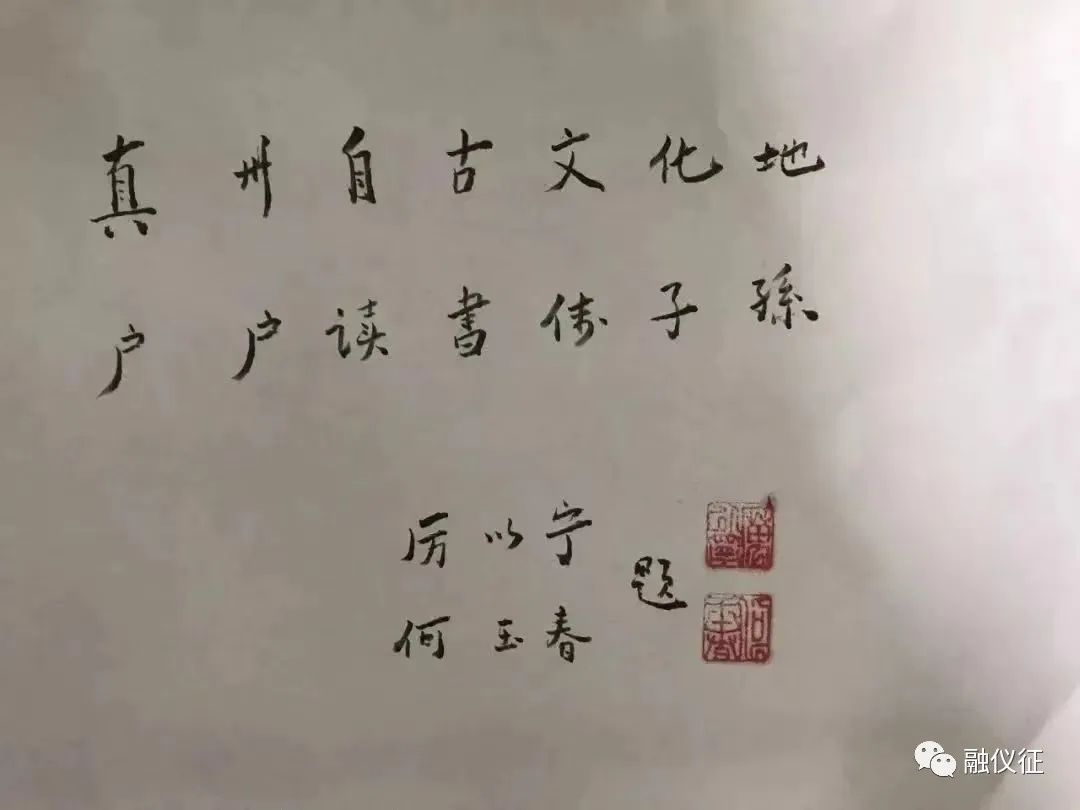 真州自古文化地
户户读書传子孫
厉以宁
何玉春
题
融仪征